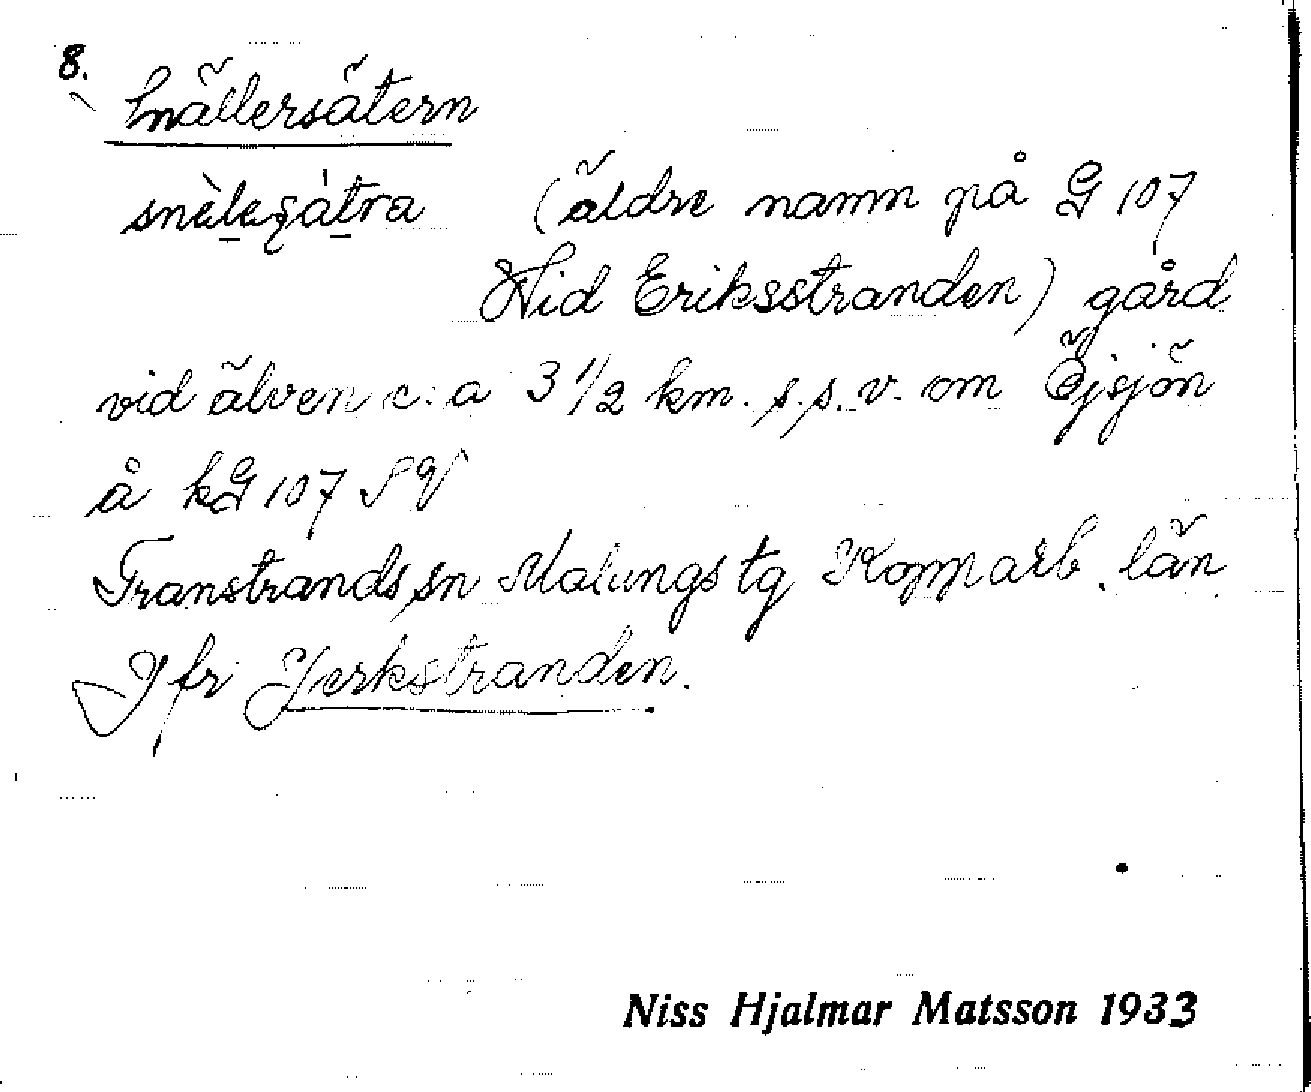 8.
Snällersätern
snèleşátra (äldre namn på G 107
Vid Eriksstranden) gård
vid älven c:a 3 1/2 km. s.s.v. om Öjsjön
å kG 107 SV
Transtrands sn Malungs tg Kopparb. län
Jfr Jerkstranden.
Niss Hjalmar Matsson 1933